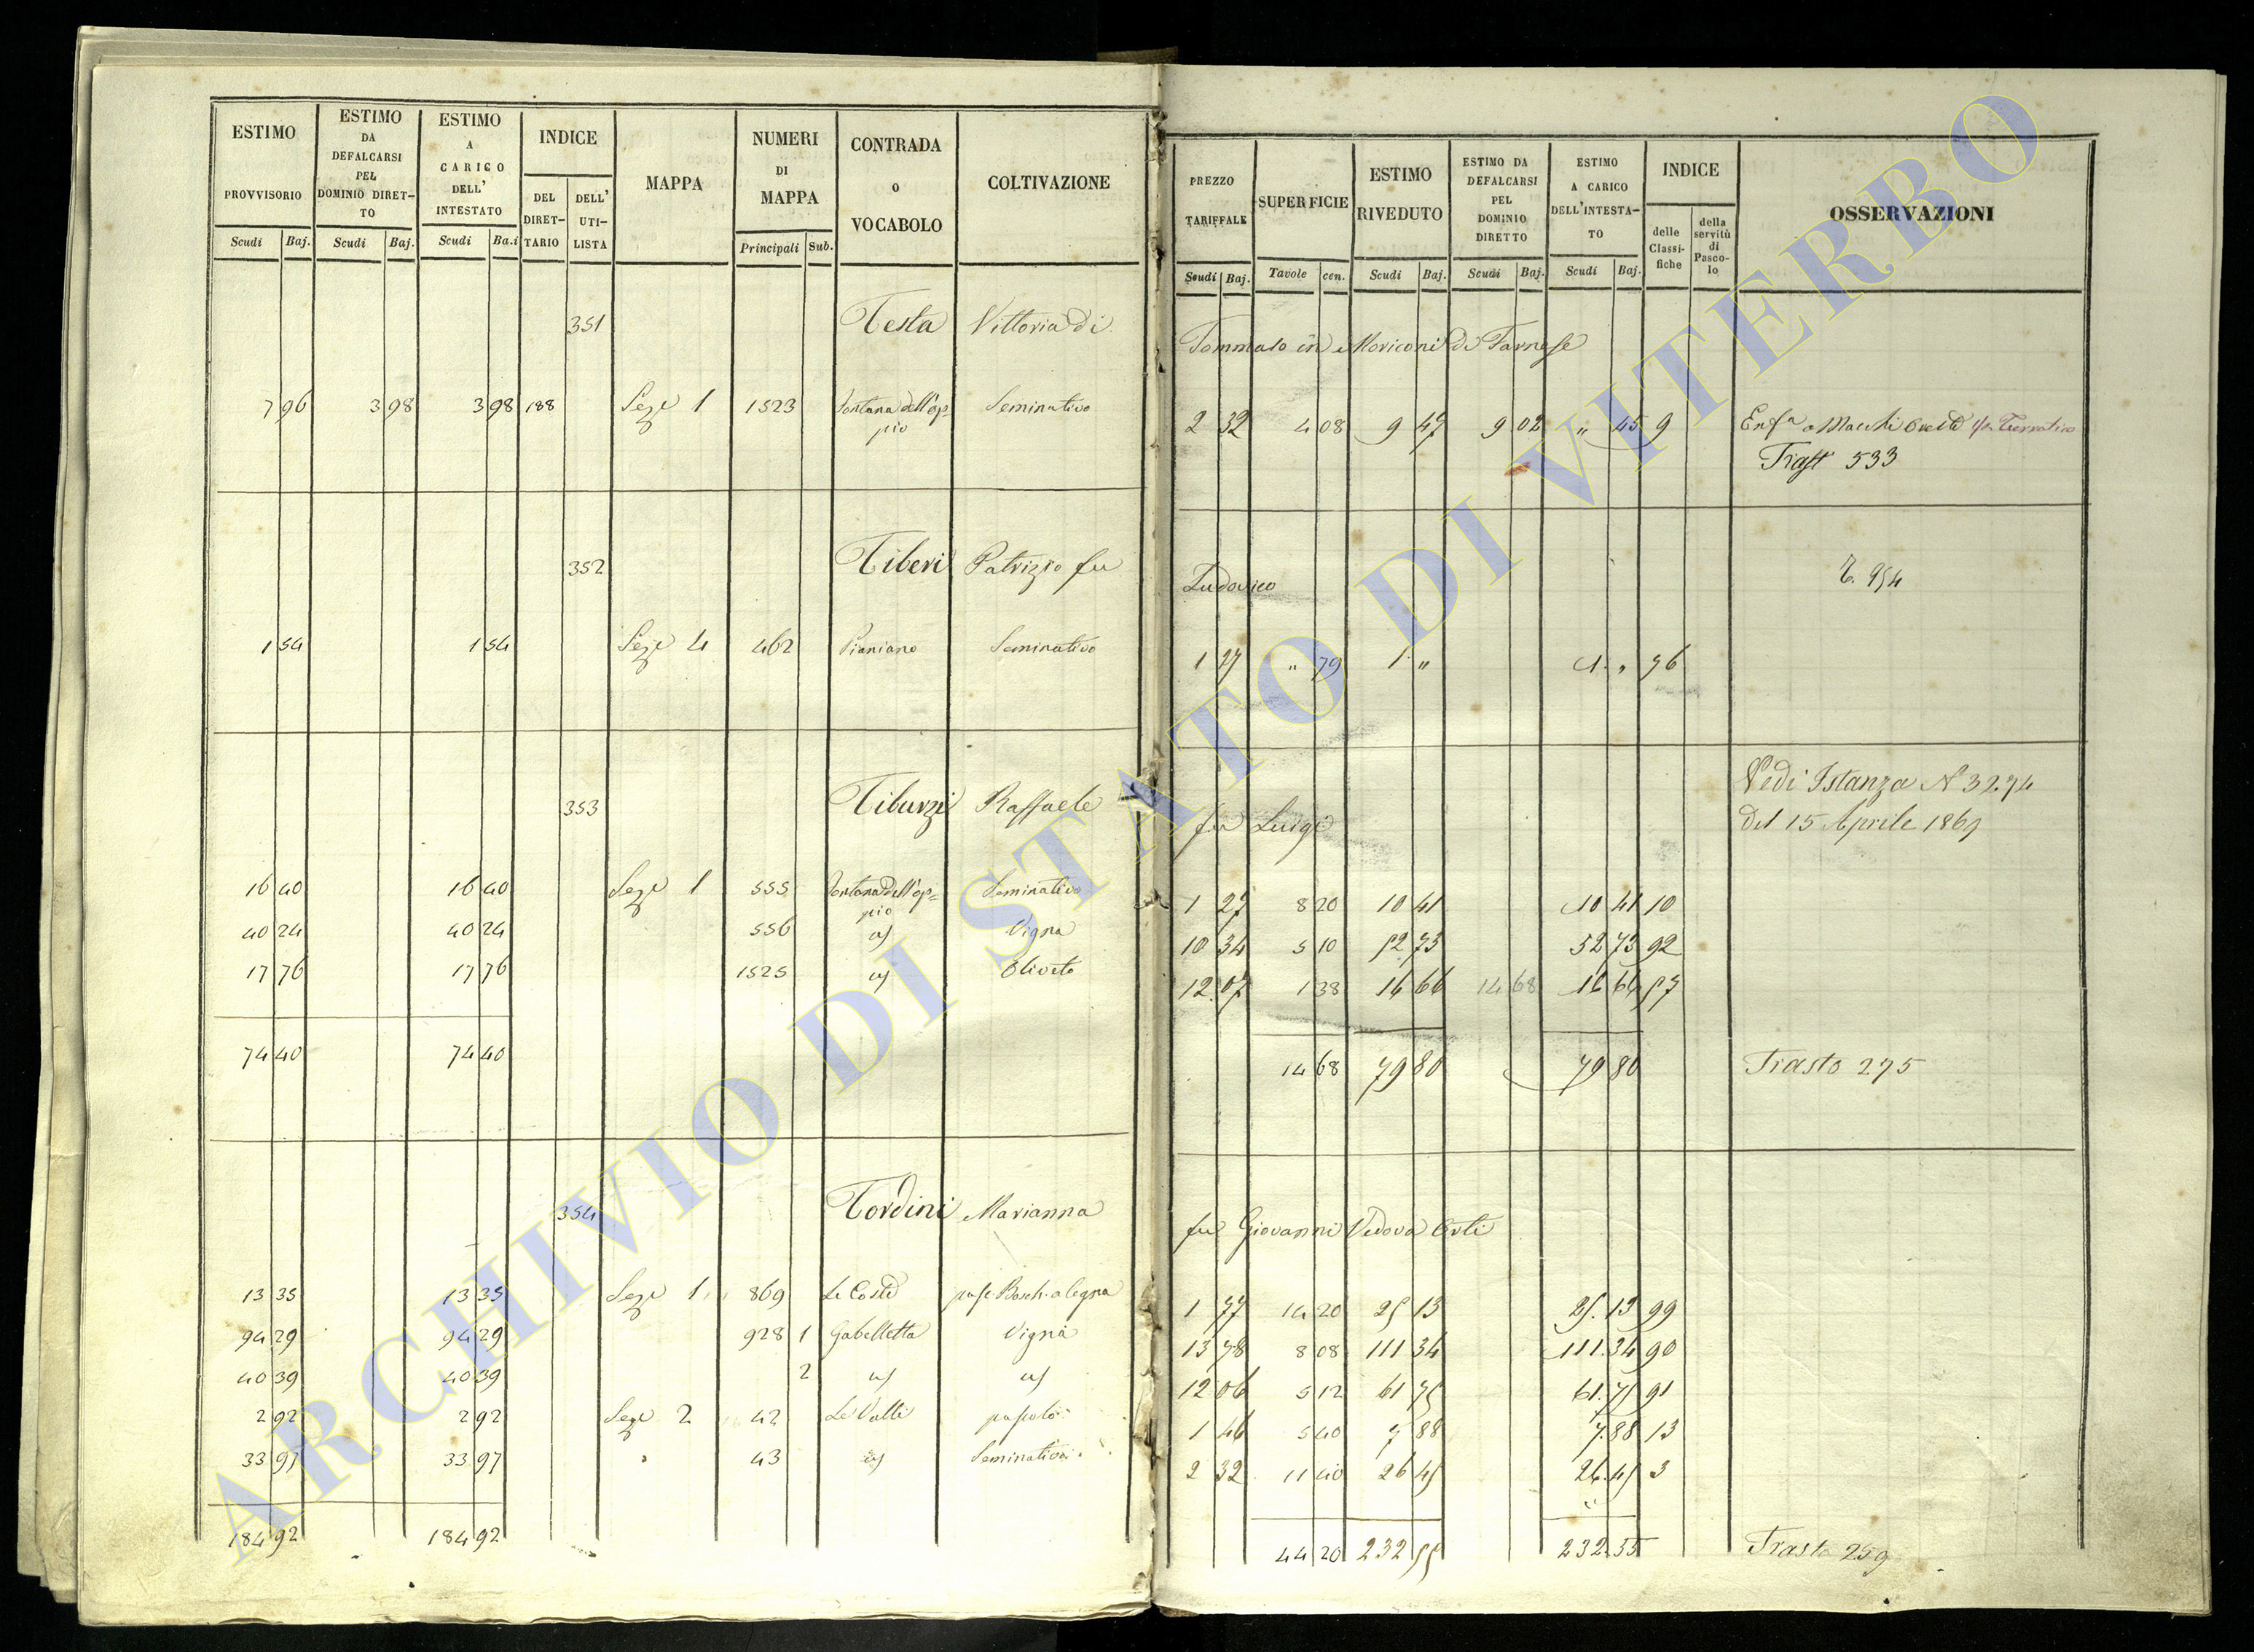 ESTIMO PROVVISORIO
Scudi Baj.
ESTIMO DA DEFALCARSI PEL DOMINIO DIRET-TO
Scudi Baj.
ESTIMO A CARICO DELL' INTESTATO
Scudi Ba.i
INDICE
DEL DIRET-TARIO
DELL' UTI-LISTA
MAPPA
NUMERI DI MAPPA
Principali Sub.
CONTRADA o VOCABOLO
COLTIVAZIONE
PREZZO TARIFFALE
Scudi Baj.
SUPERFICIE
Tavole cen.
ESTIMO RIVEDUTO
Scudi Baj.
ESTIMO DA DEFALCARSI PEL DOMINIO DIRETTO
Scudi Baj.
ESTIMO A CARICO DELL'INTESTA-TO
Scudi Baj.
INDICE
delle Classi-fiche
della servitù di Pasco-lo
OSSERVAZIONI
351 Testa Vittoria di
Tommaso in Moriconi di Farnese
7 96 3 98 3 98 188 Seze 1 1523 Fontana dell'op-pio Seminativo 2 32 4 08 9 47 9 02 " 45 9 Enfa a
Trast 533
352 Tiberi Patrizio fu
Ludovico T. 954
1 54 1 54 Seze 4 462 Pianiano Seminativo 1 27 " 79 1 " 1 " 76
353 Tiburzi Raffaele
fu Luigi
Vedi Istanza N 3274
del 15 Aprile 1869
16 40 16 40 Seze 1 555 Fontana dell'op-pio Seminativo 1 27 8 20 10 41 10 41 10
40 24 40 24 556 id Vigna 10 34 5 10 52 73 52 73 92
17 76 17 76 1525 id Oliveto 12 07 1 38 16 66 14 68 16 66 57
74 40 74 40 14 68 79 80 79 80 Trasto 275
354 Tordini Marianna
fu Giovanni Vedova Orti
13 35 13 35 Seze 1 869 Le Coste pasc Bosch. a legna 1 77 14 20 25 13 25 13 99
94 29 94 29 928 1 Gabelletta Vigna 13 78 8 08 111 34 111 34 90
40 39 40 39 2 id id 12 06 5 12 61 75 61 75 91
2 92 2 92 Seze 2 42 Le Valli pascolo 1 46 5 40 7 88 7 88 13
33 97 33 97 " 43 id Seminativo 2 32 11 40 26 45 26 45 3
184 92 184 92 44 20 232 55 232 55 Trasto 259
ARCHIVIO DI STATO DI VITERBO